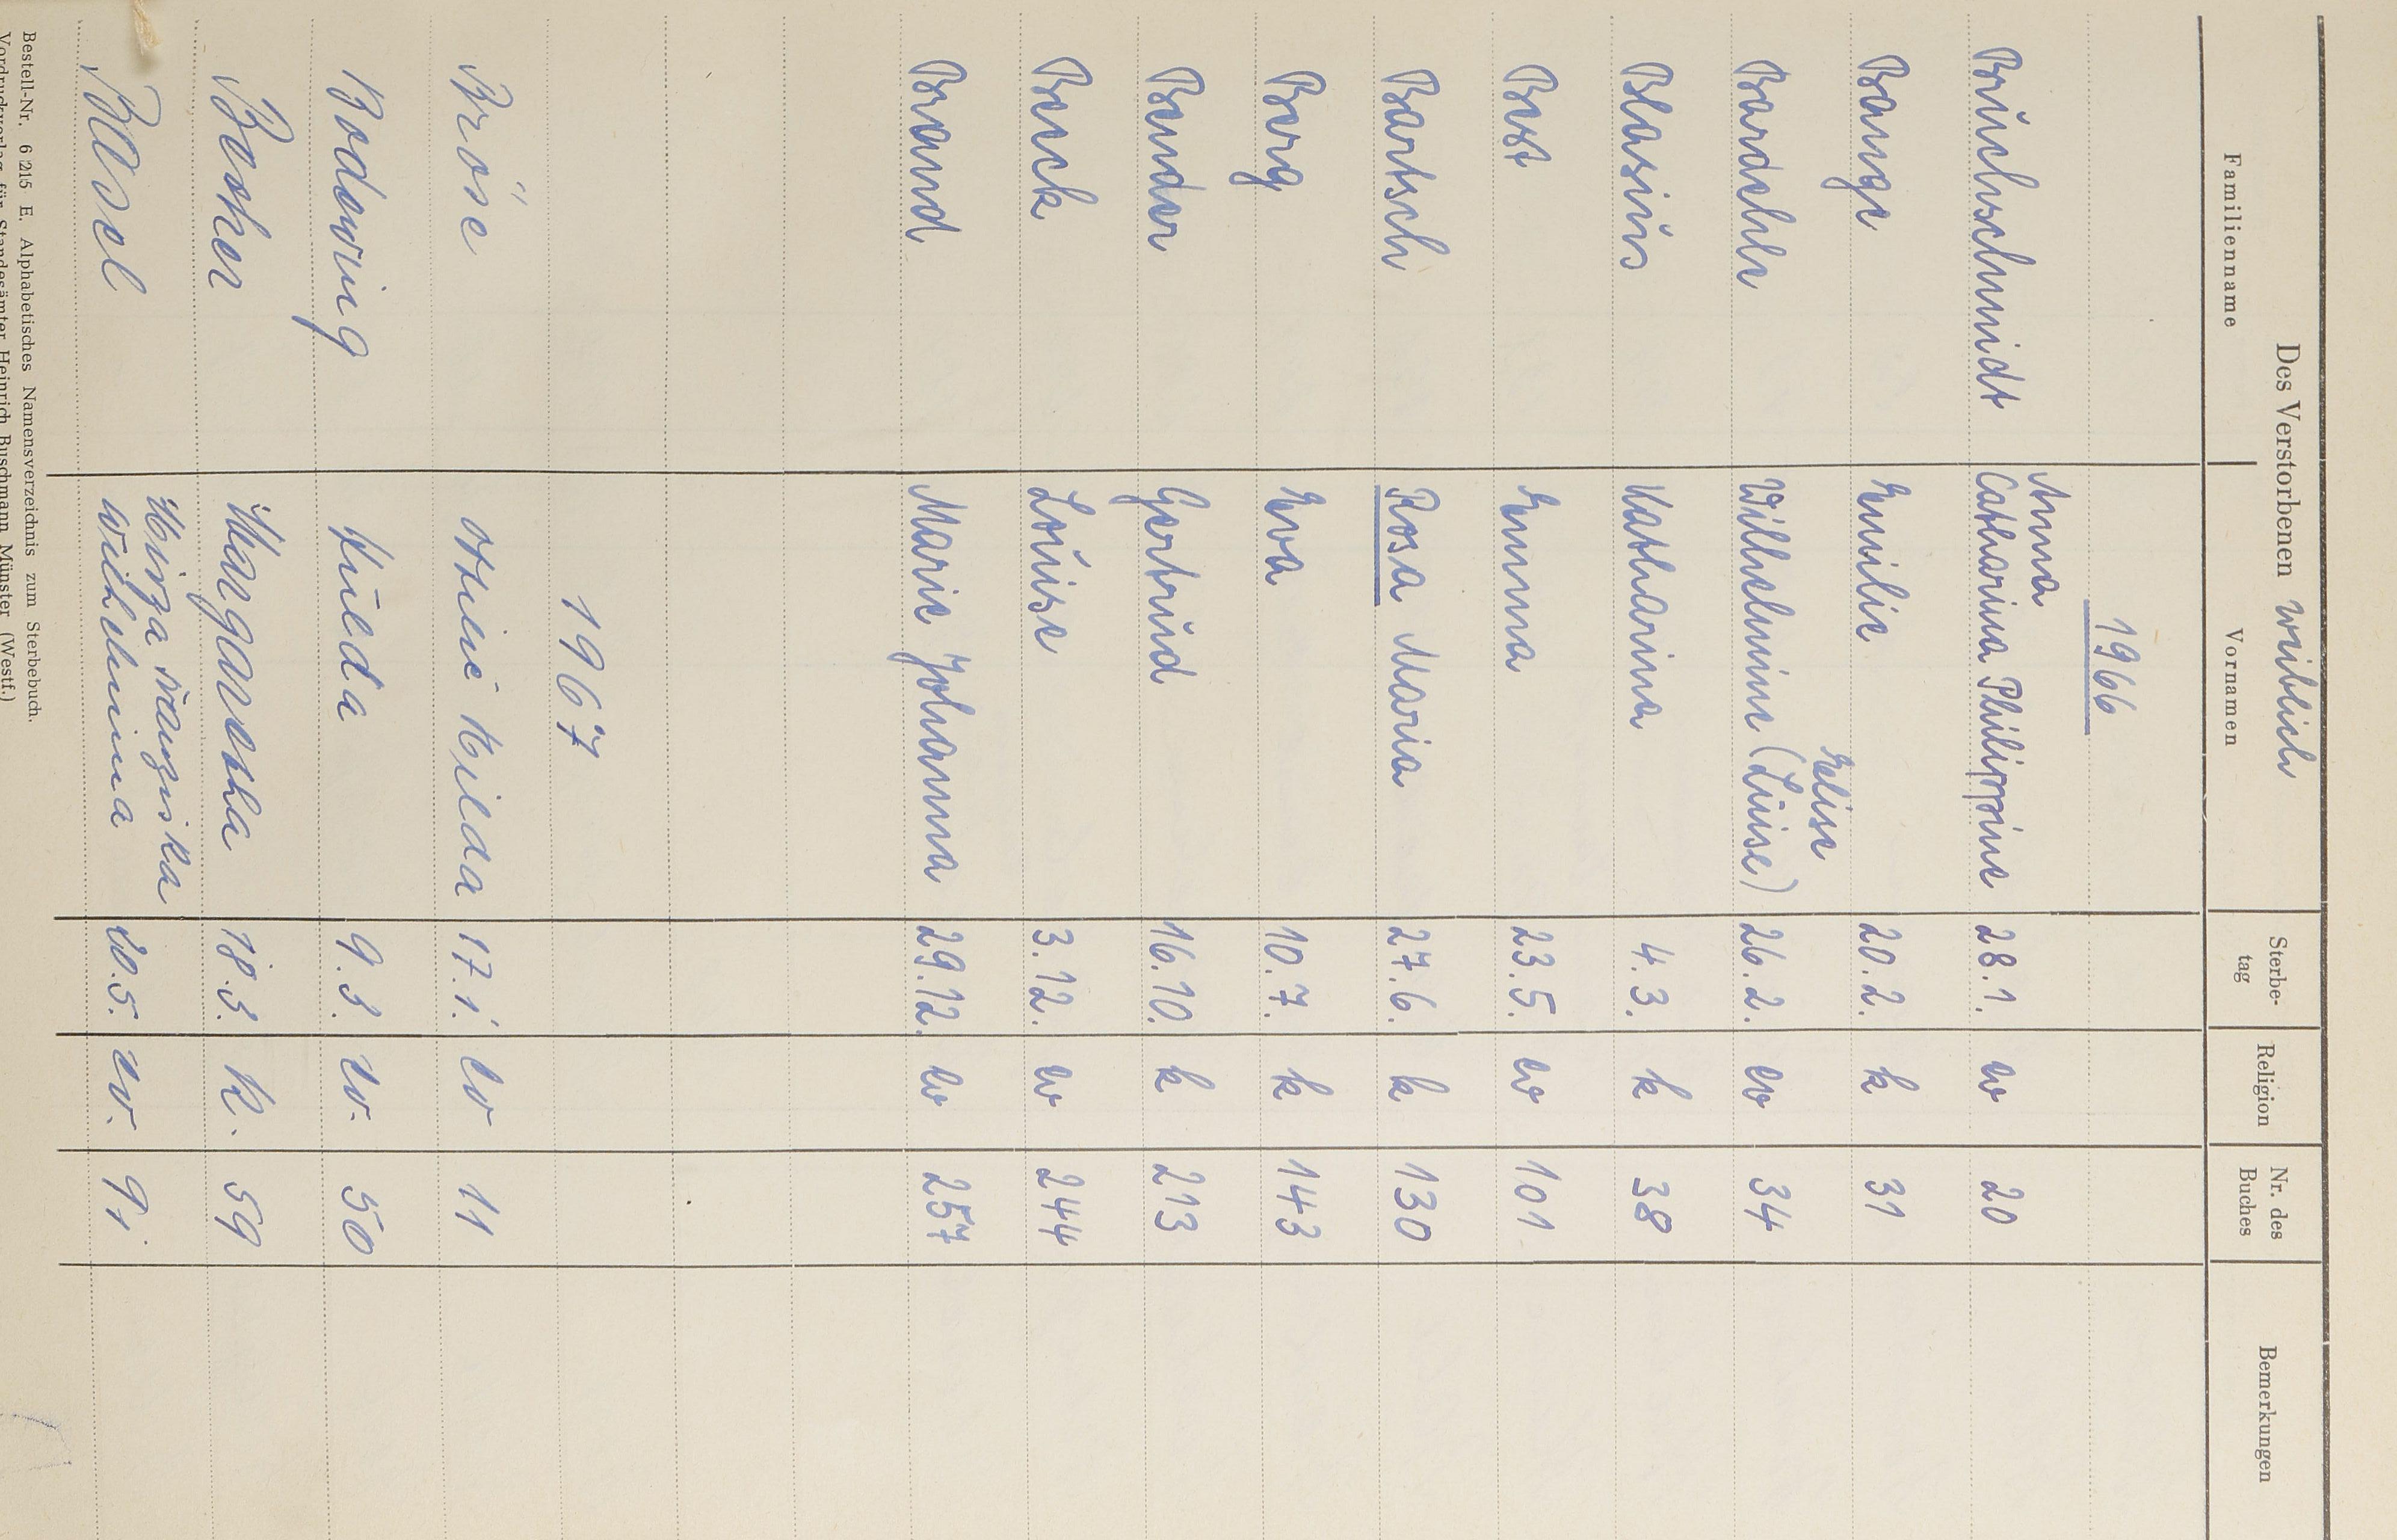 Des Verstorbenen weiblich
Familienname Vornamen Sterbe- Religion Nr. des Bemerkungen
tag Buches
1966
Anna
Bruchschmidt Catharina Philippine 28.1. ev 20
Bange Emilie 20.2. k 31
Elise
Bardehle Wilhelmine (Luise) 26.2. ev 34
Blasius Katharina 4.3. k 38
Best Emma 23.5. ev 101
Bartsch Rosa Maria 27.6. k 130
Berg Eva 10.7. k 143
Bender Gertrud 16.10. k 213
Louise 3.12. ev 244
Brand Marie Johanna 29.12. ev 257
1967
Bröse Ottilie Hilda 17.1. ev 11
Bodewig Hulda 9.3. ev. 50
Becker Margaretha 18.3. k. 59
Franziska
Wilhelmina 20.5. ev. 91
Bestell-Nr. 6 215 E. Alphabetisches Namensverzeichnis zum Sterbebuch.
Vordruckverlag für Standesämter Heinrich Buschmann, Münster (Westf.)